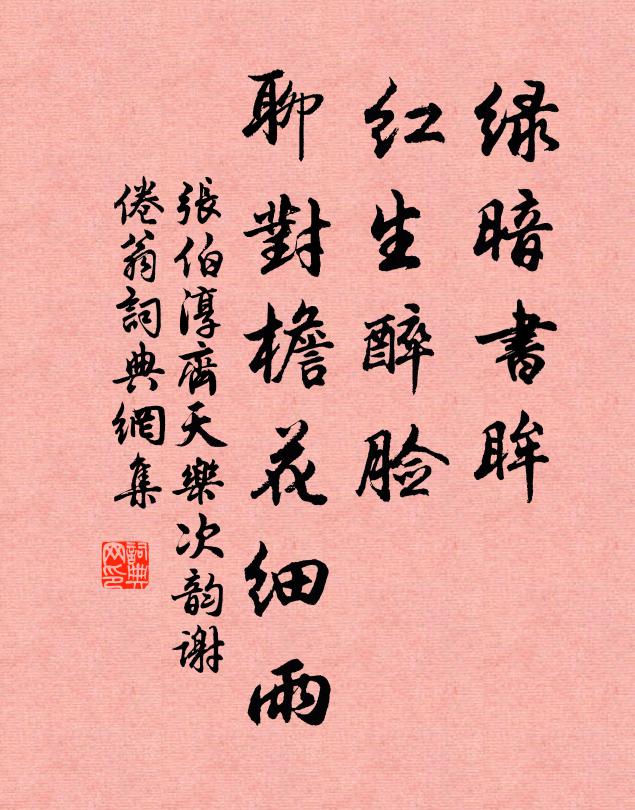 绿暗書眸
红生醉脸
聊對檐花细雨
張伯淳齊天樂次韵谢
倦翁詞典網集
詞典
网印